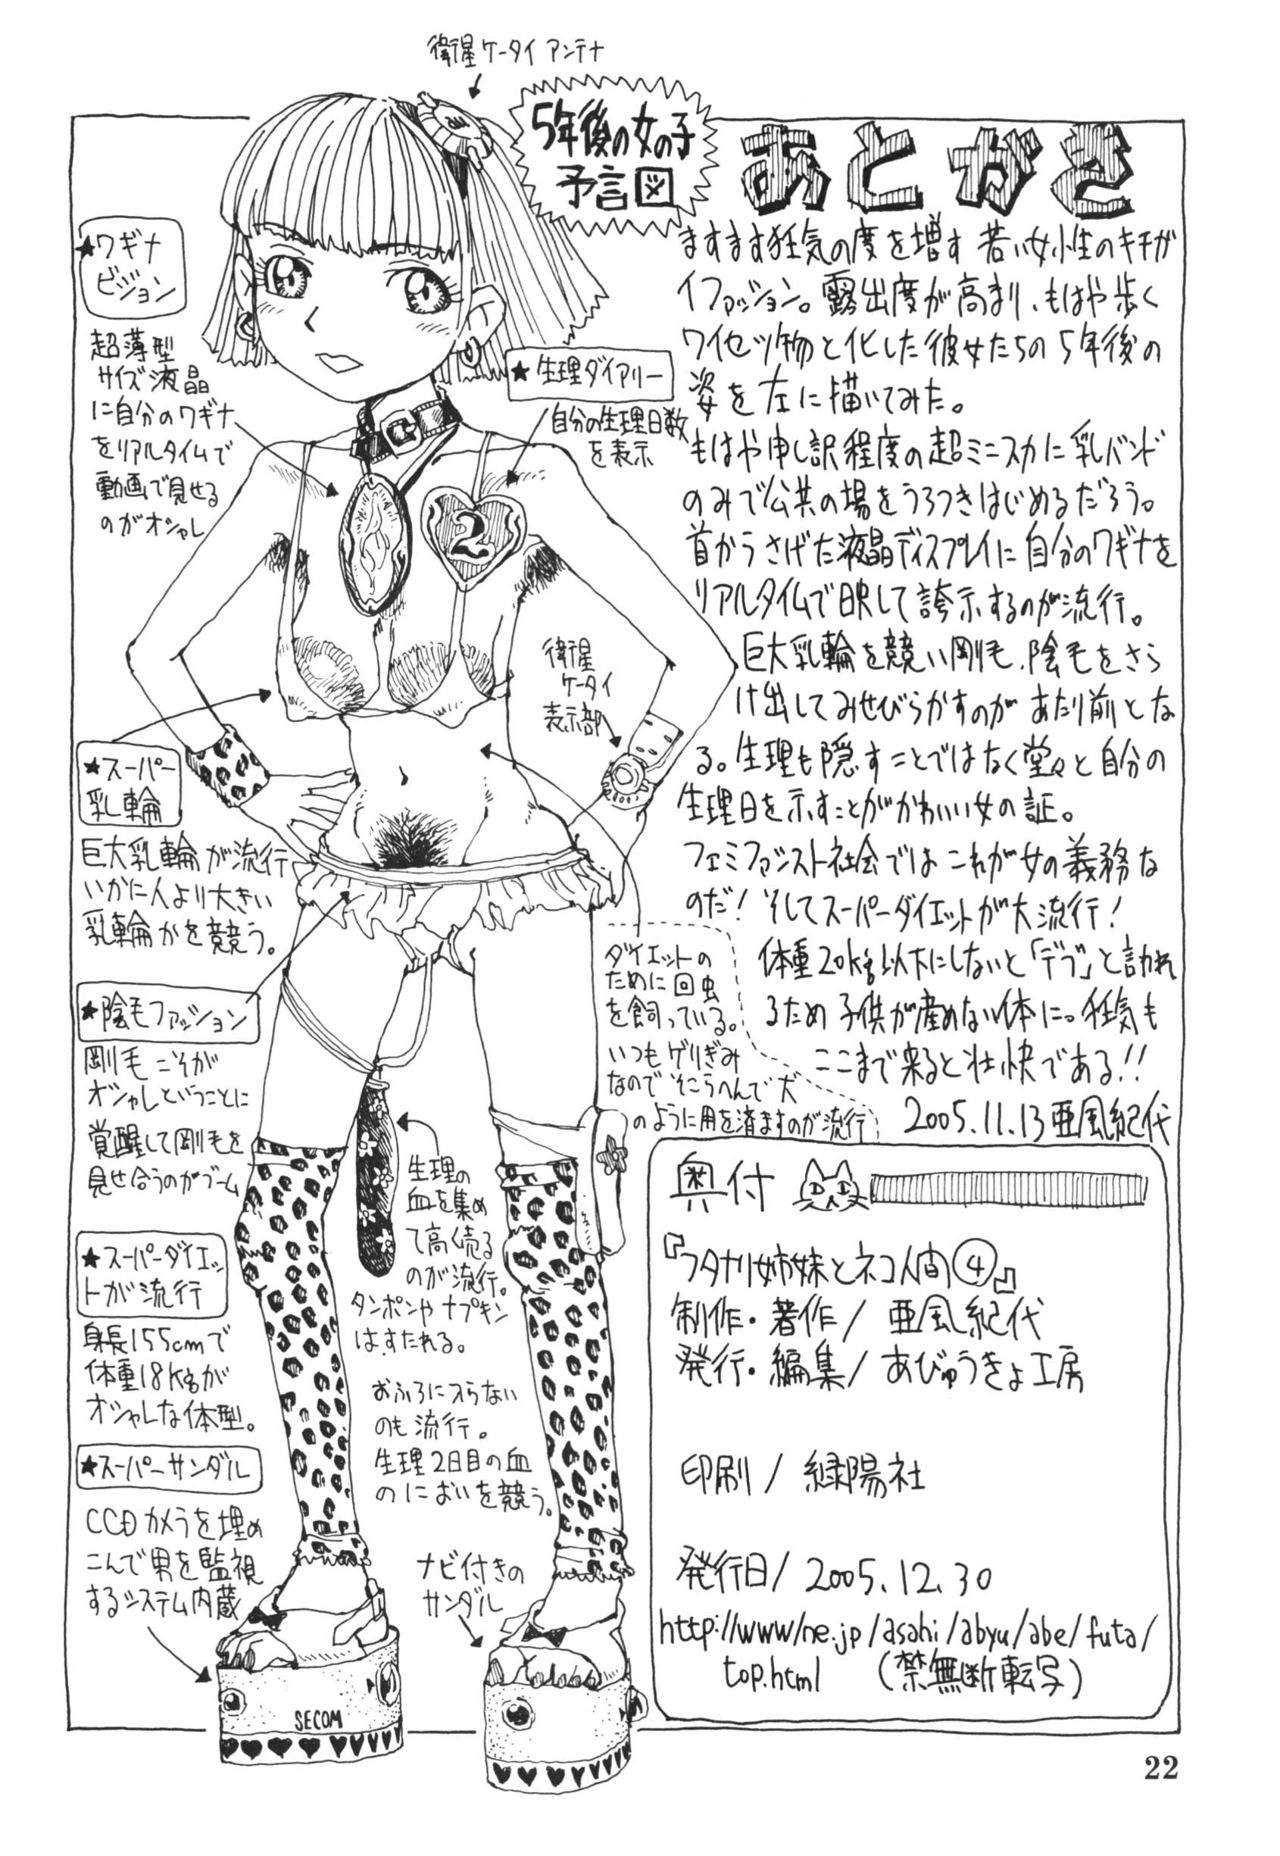 衛星ケータイ アンテナ
5年後の女の子
予言図
あとがき
ますます狂気の度を増す 若い女性のキチガ
イファッション。露出度が高まり、もはや歩く
ワイセツ物と化した彼女たちの5年後の
姿を左に描いてみた。
もはや申し訳程度の超ミニスカに乳バンド
のみで公共の場をうろつきはじめるだろう。
首からさげた液晶ディスプレイに自分のワギナを
リアルタイムで映して誇示するのが流行。
巨大乳輪を競い剛毛、陰毛をさら
け出してみせびらかすのがあたり前とな
る。生理も隠すことではなく堂々と自分の
生理日を示すことがかわいい女の証。
フェミファシスト社会ではこれが女の義務な
のだ! そしてスーパーダイエットが大流行!
体重20kg以下にしないと「デブ」と言われ
るため子供が産めない体に。狂気も
ここまで来ると壮快である!!
2005.11.13 亜風紀代
★ワギナ
ビジョン
超薄型
サイズ液晶
に自分のワギナ
をリアルタイムで
動画で見せる
のがオシャレ
★生理ダイアリー
自分の生理日数
を表示
2
衛星
ケータイ
表示部
★スーパー
乳輪
巨大乳輪が流行
いかに人より大きい
乳輪かを競う。
★陰毛ファッション
剛毛こそが
オシャレということに
覚醒して剛毛を
見せ合うのがブーム
ダイエットの
ために回虫
を飼っている。
いつもゲリぎみ
なのでそこらへんで犬
のように用を済ますのが流行
★スーパーダイエッ
トが流行
身長155cmで
体重18kgが
オシャレな体型。
生理の
血を集め
て高く売る
のが流行。
タンポンやナプキン
はすたれる。
おふろに入らない
のも流行。
生理2日目の血
のにおいを競う。
★スーパーサンダル
CCDカメラを埋め
こんで男を監視
するシステム内蔵
ナビ付きの
サンダル
SECOM
奥付
『フタナリ姉妹とネコ人間④』
制作・著作/ 亜風紀代
発行・編集/ あびゅうきょ工房
印刷/ 緑陽社
発行日/ 2005.12.30
http://www/ne.jp/asahi/abyu/abe/futa/
top.html (禁無断転写)
22